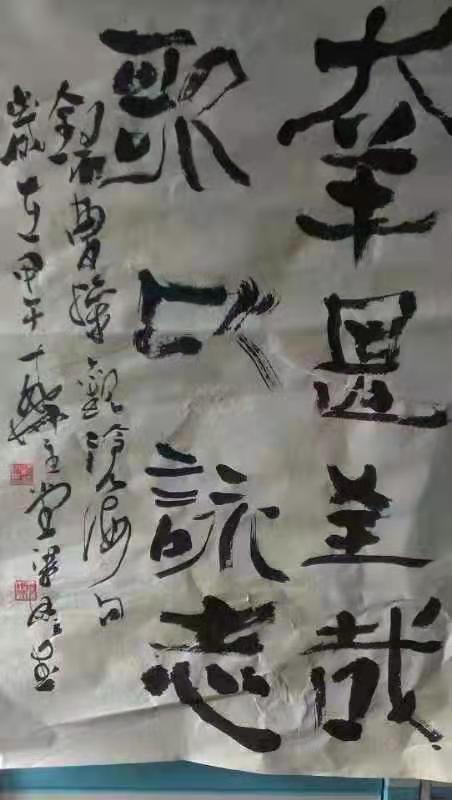 幸甚至哉
歌以詠志
錄曹操觀滄海句
歲在甲午